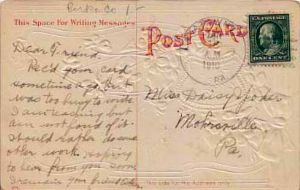 Berks Co
This Space for Writing Messages
POST CARD
Dear Friend
Rec'd your card
sometime ago but
was too busy to write
I am teaching but
am not fond of it
should rather do some
other work. Hoping
to hear from you soon
I remain your friend
Miss Daisy Yoder
Mohrsville
Pa.
PA.